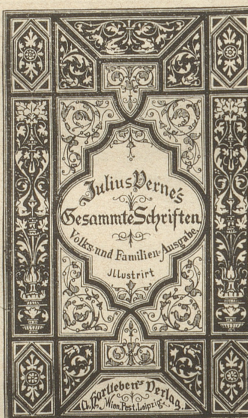 Julius Verne's
Gesammte Schriften
Volks- und Familien-Ausgabe
Illustrirt
A. Hartleben's Verlag
Wien, Pest, Leipzig.